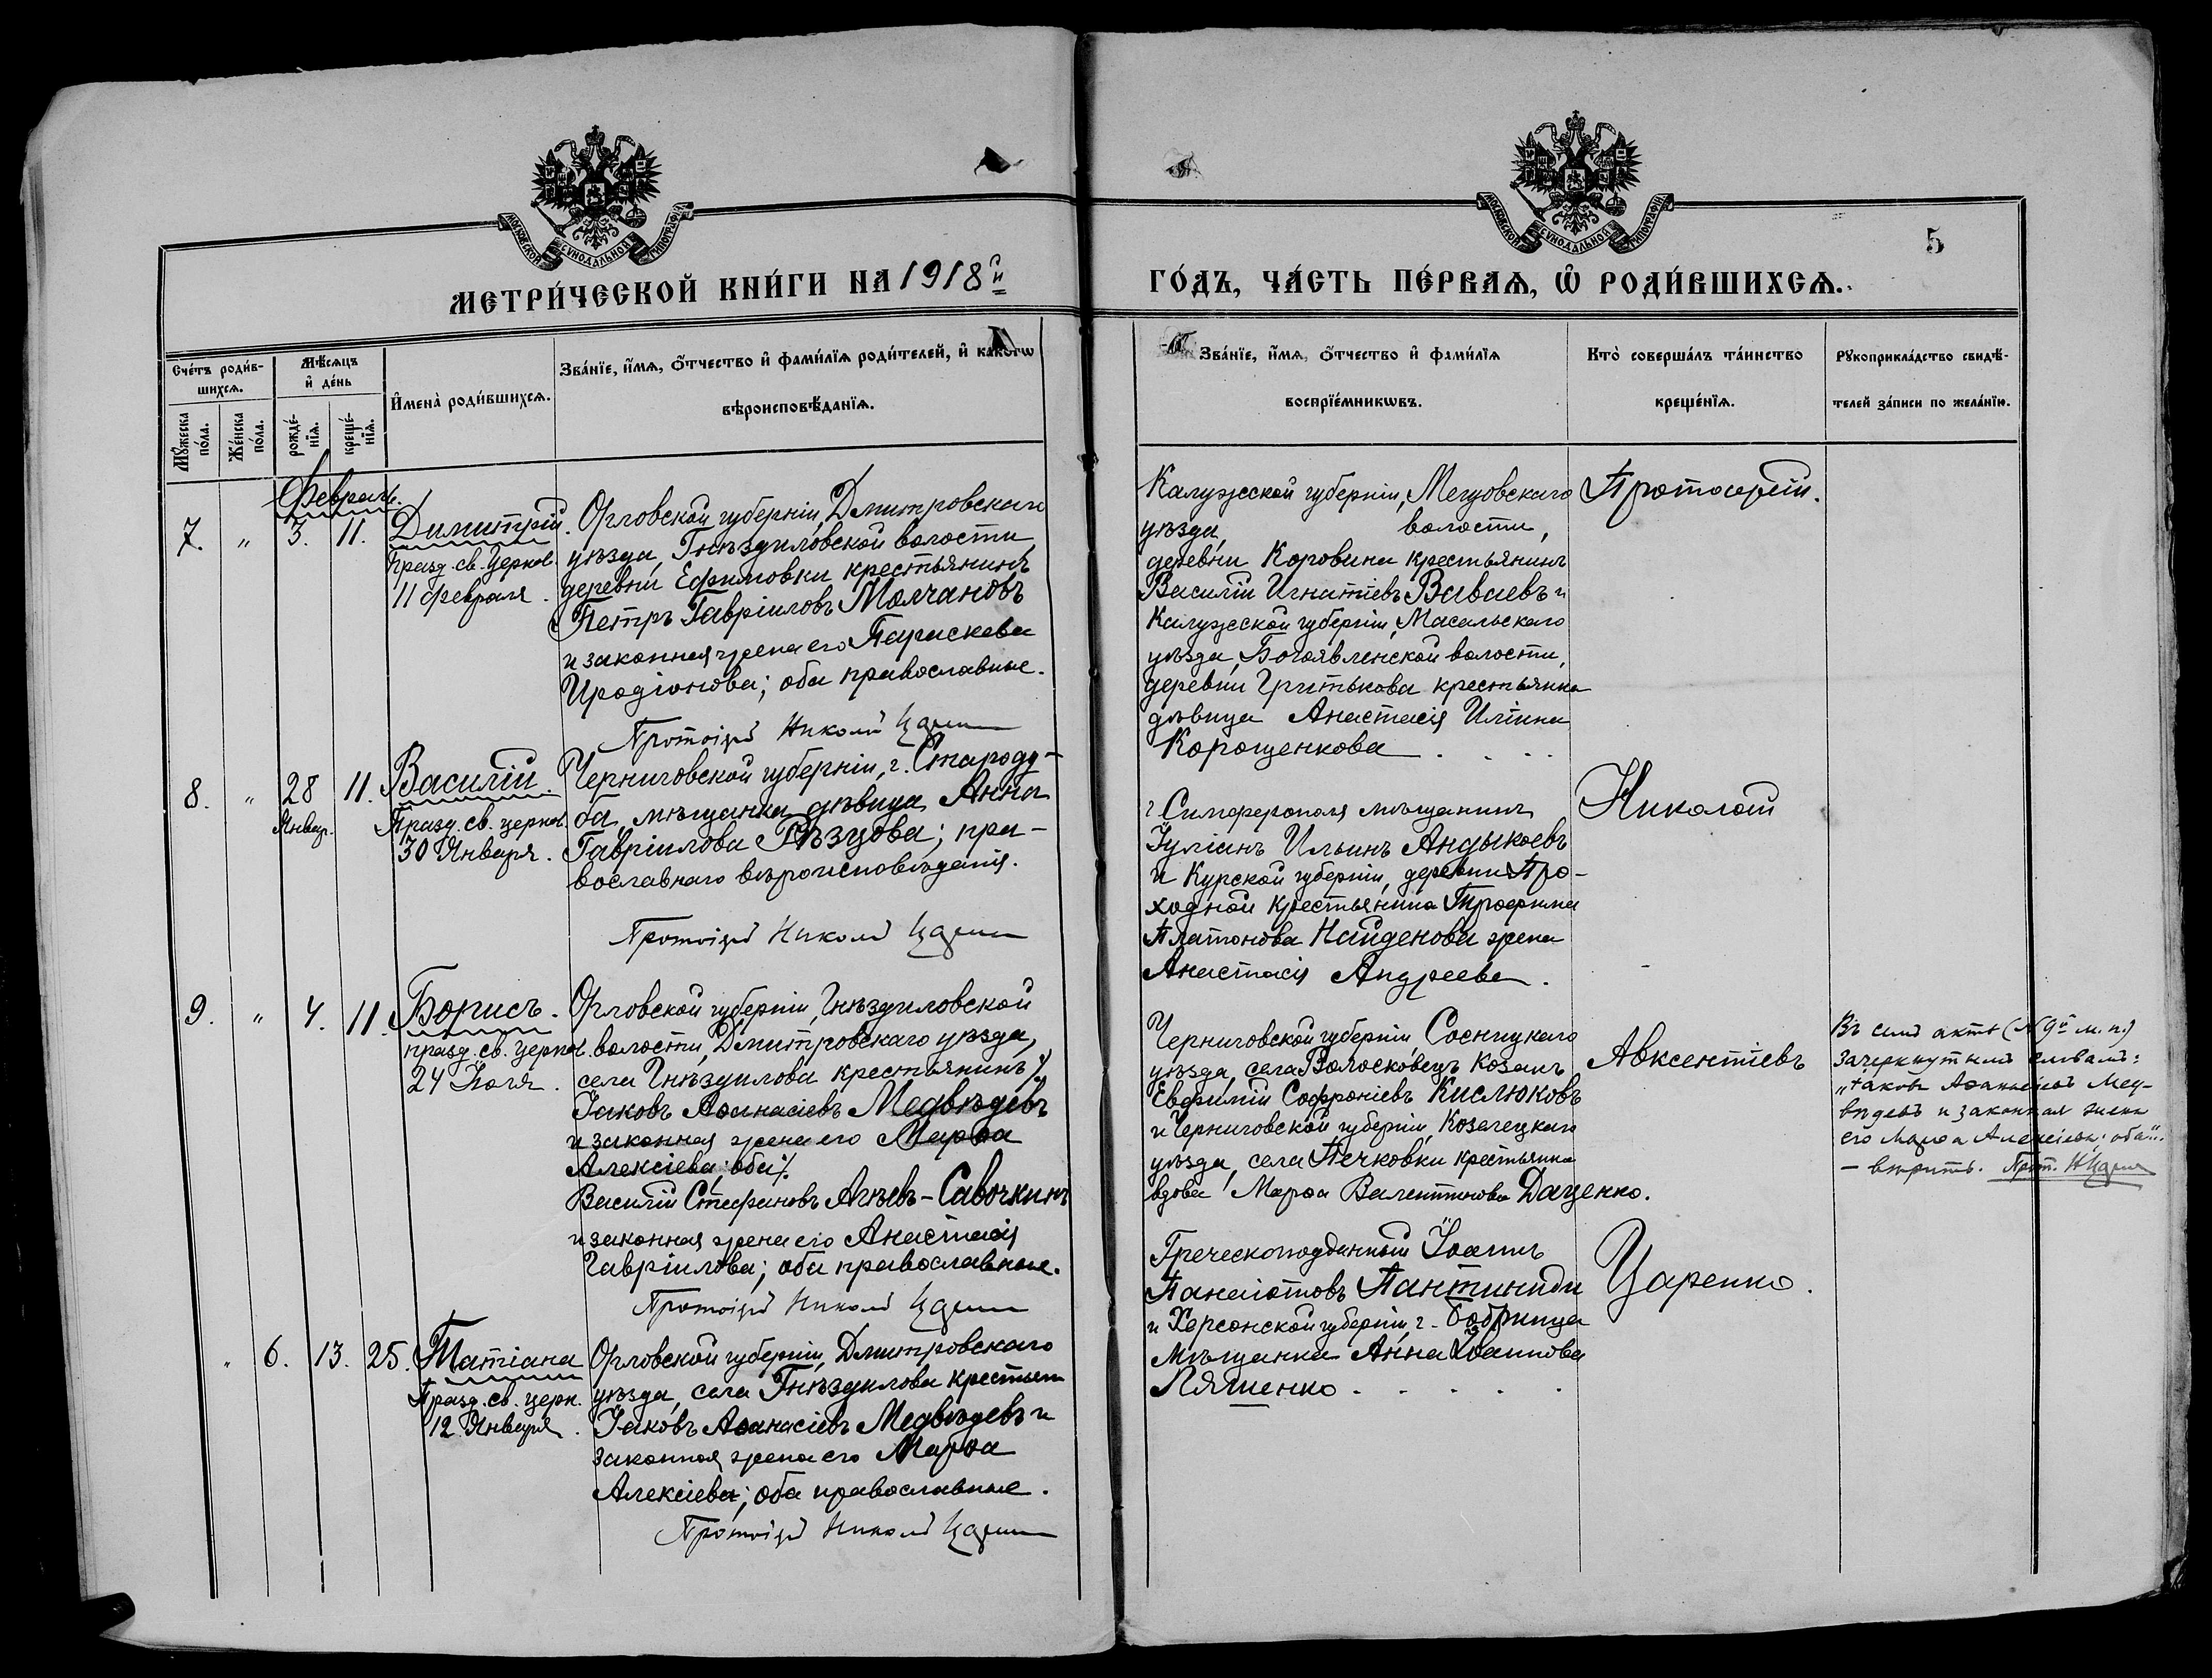 МОСКОВСКОЙ СѴНОДАЛЬНОЙ ТИПОГРАФІИ
МЕТРИ́ЧЕСКОЙ КНИ́ГИ НА 1918й
Сче́тъ роди́в-
шихсѧ.
Мꙋжеска
по́ла.
Же́нска
по́ла.
Мѣ́сѧцъ
и҆ де́нь
рожде́-
нїѧ.
креще́-
нїѧ.
И҆мена̀ роди́вшихсѧ.
Зва́нїе, и҆́мѧ, ѻ҆́тчество и҆ фами́лїѧ роди́телей, и҆ како́гѡ
вѣроисповѣ́данїѧ.
Февраль.
7. " 3. 11. Димитрій.
празд. св. церков.
11 февраля.
Орловской губерніи, Дмитровскаго
уѣзда, Гнѣздиловской волости
деревни Ефимовки крестьянинъ
Петръ Гавріиловъ Молчановъ
и законная жена его Параскева
Иродіонова; оба православные.
Протоіерей Николай
8. " 28 11. Василій.
Январ.
Празд. св. церков.
30 Января.
Черниговской губерніи, г. Староду-
ба, мѣщанка дѣвица Анна
Гавріилова Рѣзцова; пра-
вославнаго вѣроисповѣданія.
Протоіерей Николай
9. " 4. 11. Борисъ.
празд. св. церков.
24 Іюля.
Орловской губерніи, Гнѣздиловской
волости, Дмитровскаго уѣзда,
села Гнѣздилова крестьянинъ
Іаковъ Аѳанасіевъ Медвѣдевъ
и законная жена его Марѳа
Алексіева; оба
Василій Стефановъ Агѣевъ-Савочкинъ
и законная жена его Анастасія
Гавріилова; оба православные.
Протоіерей Николай
" 6. 13. 25. Татіана
Празд. св. церк.
12 Января.
Орловской губерніи, Дмитровскаго
уѣзда, села Гнѣздилова крестьян
Іаковъ Аѳанасіевъ Медвѣдевъ и
законная жена его Марѳа
Алексіева; оба православные.
Протоіерей Николай
МОСКОВСКОЙ СѴНОДАЛЬНОЙ ТИПОГРАФІИ
5
ГО́ДЪ, ЧА́СТЬ ПЕ́РВАѦ, Ѡ҆ РОДИ́ВШИХСѦ.
Зва́нїе, и҆́мѧ, ѻ҆́тчество и҆ фами́лїѧ
воспрїе́мникѡвъ.
Кто̀ соверша́лъ та́инство
креще́нїѧ.
Рꙋкоприкла́дство свидѣ́-
телей за́писи по жела́нїю.
Калужской губерніи, Мещовскаго
уѣзда, волости,
деревни Коровина крестьянинъ
Василій Игнатіевъ Ваваевъ и
Калужской губерніи, Масальскаго
уѣзда, Богоявленской волости,
деревни Гритькова крестьянка
дѣвица Анастасія Иліина
Корощенкова
г. Симферополя мѣщанинъ
Іуліанъ Ильинъ Андыкоевъ
и Курской губерніи, деревни Про-
ходной крестьянина Трофима
Платонова Найденова жена
Анастасія Андреева.
Черниговской губерніи Сосницкаго
уѣзда, села Волосковецъ козакъ
Евфимій Софроніевъ Кислюковъ
и Черниговской губерніи, Козелецкаго
уѣзда, села Печковки крестьянка
вдова Марѳа Валентинова Даценко.
Греческоподданный Іоаннъ
Панаіотовъ Пантиниди
и Херсонской губерніи, г. Бобринца
мѣщанка Анна Іоаннова
Ляшенко
Протоіерей.
Николай
Авксентіевъ
Царенко.
Въ семъ актѣ (№ 9й м. п.)
зачеркнутымъ словамъ:
„Іаковъ Аѳанасіевъ Мед-
вѣдевъ и законная жена
его Марѳа Алексіева; оба".
— вѣрить. Прот.